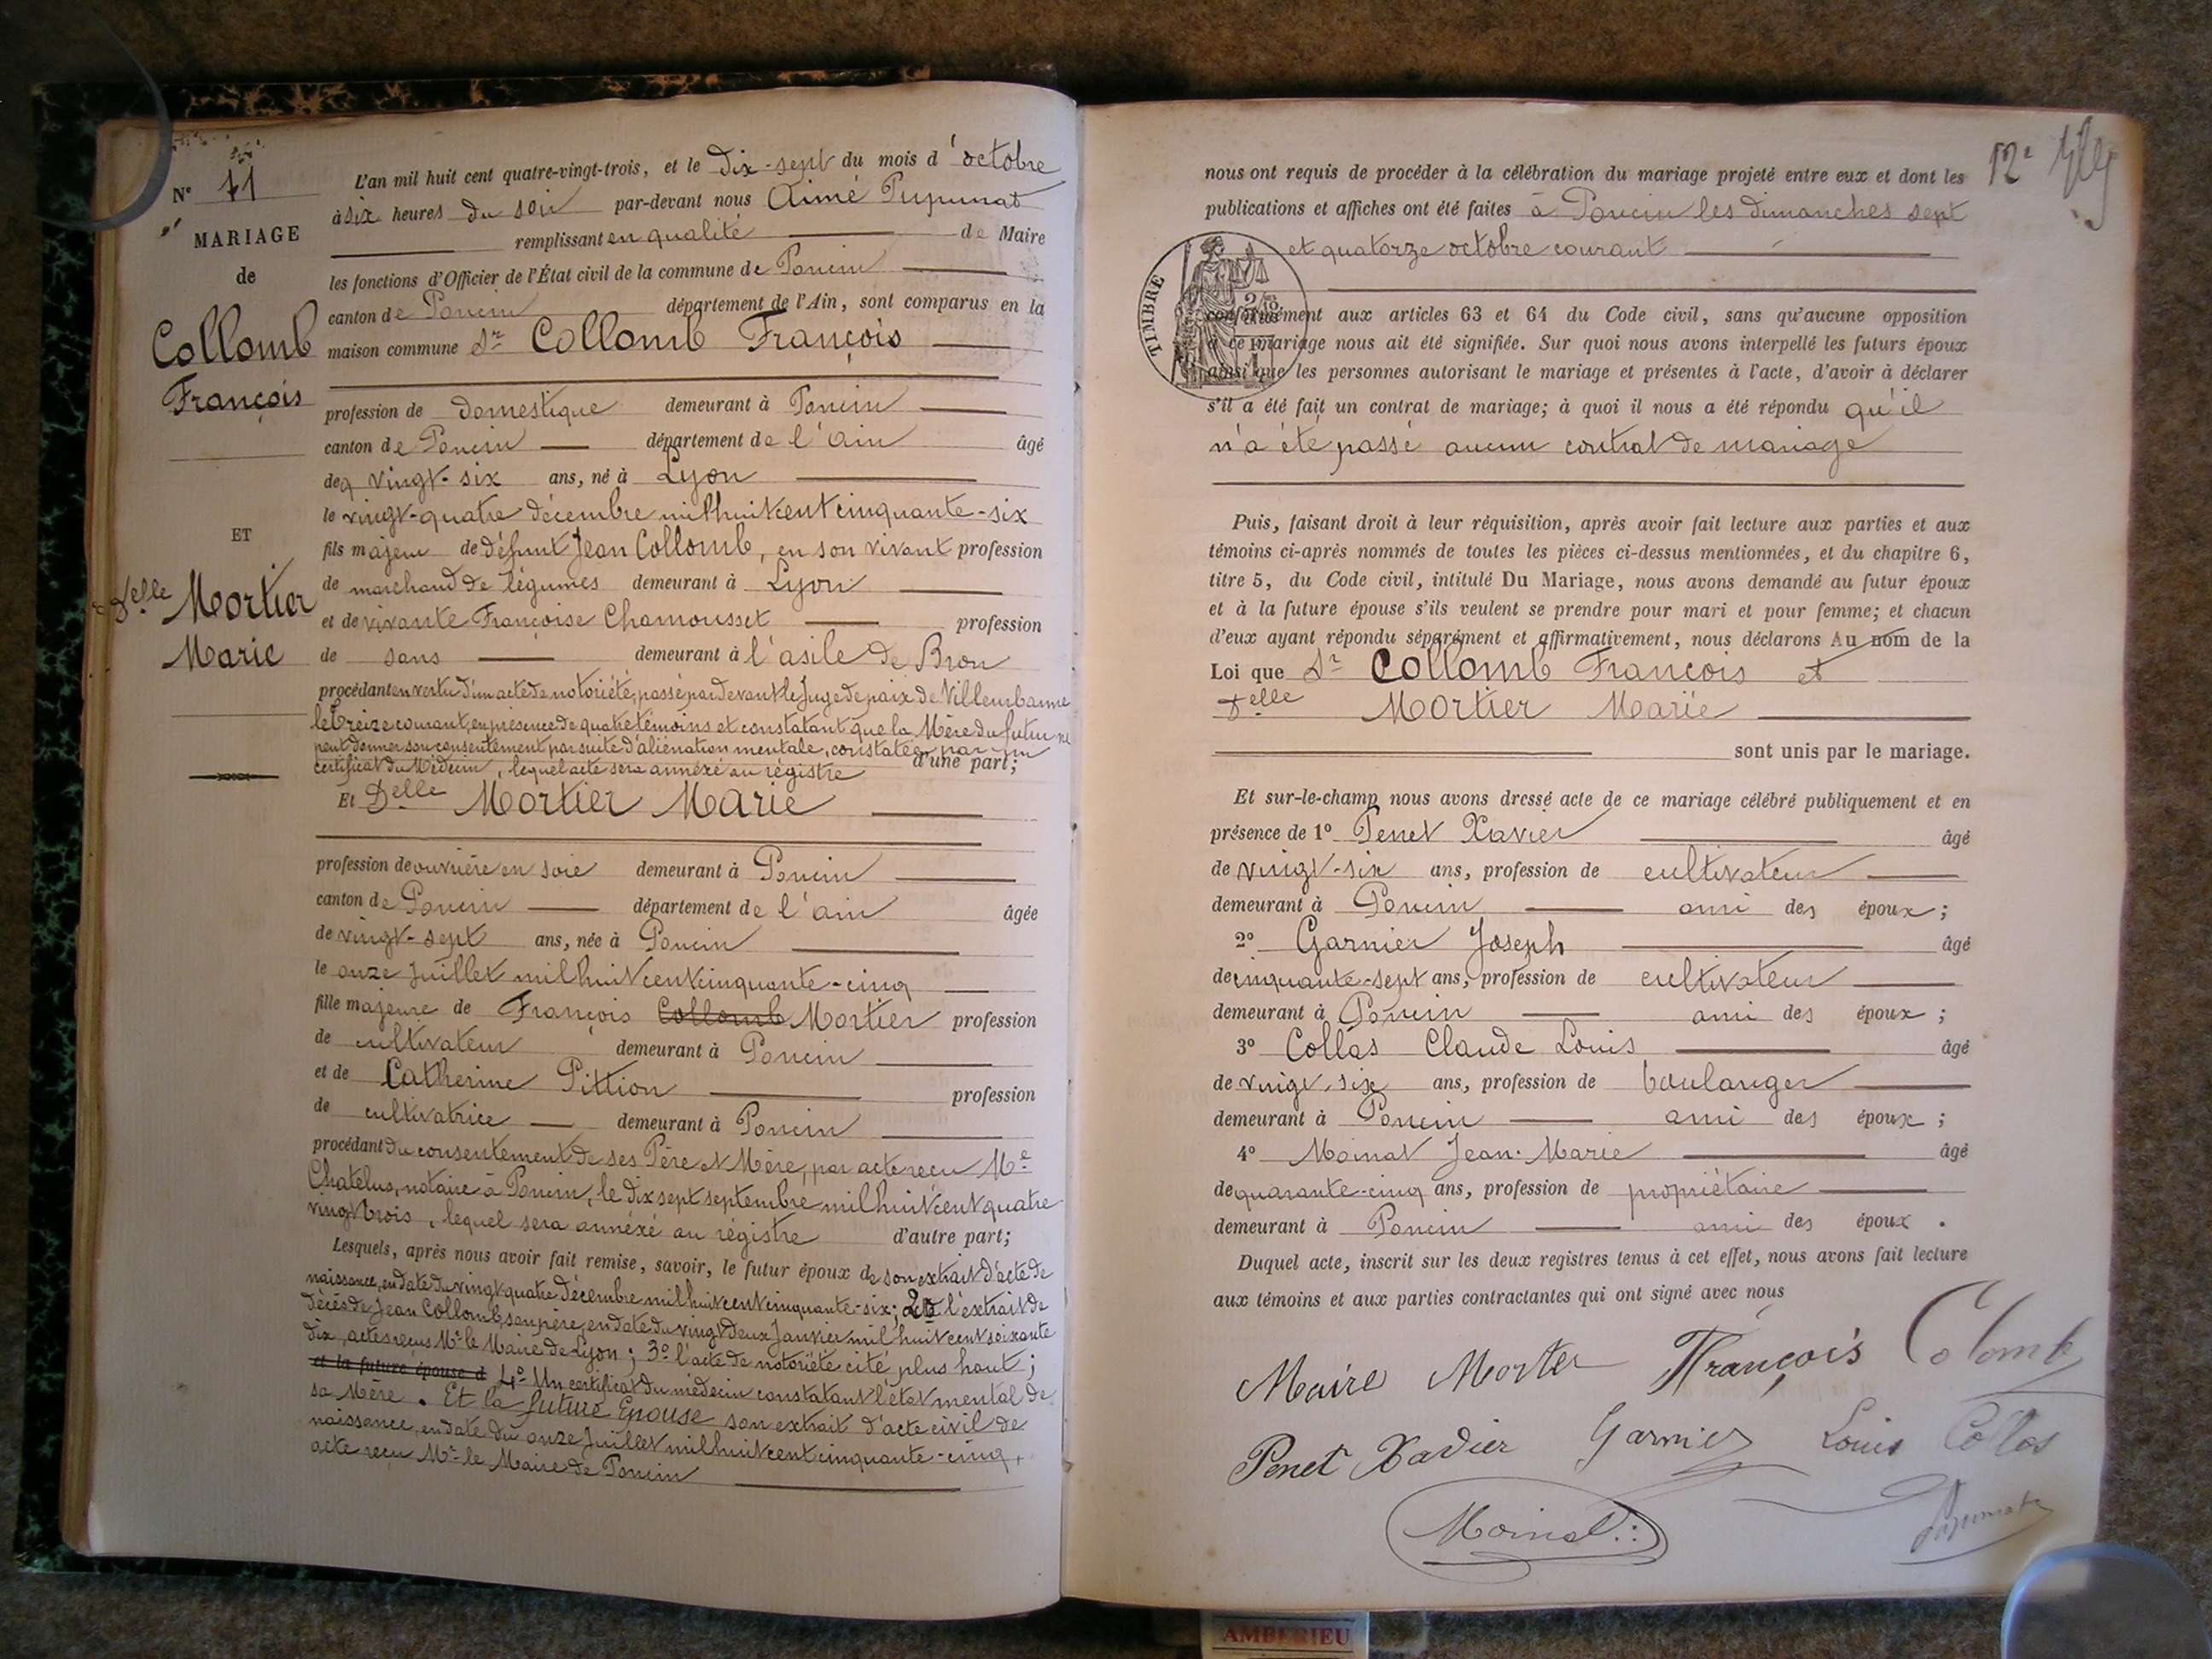 N° 11
MARIAGE
de
Collomb
François
ET
Delle Mortier
Marie
L'an mil huit cent quatre-vingt-trois, et le dix-sept du mois d'octobre
à six heures du soir par-devant nous Aimé Pupunat
remplissant en qualité de Maire
les fonctions d'Officier de l'État civil de la commune de Poncin
canton de Poncin département de l'Ain, sont comparus en la
maison commune Sr Collomb François
profession de domestique demeurant à Poncin
canton de Poncin département de l'ain âgé
de vingt-six ans, né à Lyon
le vingt-quatre décembre mil huit cent cinquante-six
fils majeur de défunt Jean Collomb, en son vivant profession
de marchand de légumes demeurant à Lyon
et de vivante Françoise Chamousset profession
de sans demeurant à l'asile de Bron
procédant en vertu d'un acte de notoriété, passé par devant le Juge de paix de Villeurbanne
le treize courant, en présence de quatre témoins et constatant que la Mère du futur ne
peut donner son consentement par suite d'aliénation mentale, constatée par un
certificat du Médecin, lequel acte sera annéxé au régistre d'une part;
Et Delle Mortier Marie
profession de ouvrière en soie demeurant à Poncin
canton de Poncin département de l'ain âgée
de vingt-sept ans, née à Poncin
le onze Juillet mil huit cent cinquante-cinq
fille majeure de François Collomb Mortier profession
de cultivateur demeurant à Poncin
et de Catherine Pittion profession
de cultivatrice demeurant à Poncin
procédant du consentement de ses Père et Mère, par acte reçu Me
Chatelus, notaire à Poncin, le dix sept septembre mil huit cent quatre
vingt trois, lequel sera annéxé au régistre d'autre part;
Lesquels, après nous avoir fait remise, savoir, le futur époux de son extrait d'acte de
naissance, en date du vingt quatre décembre mil huit cent cinquante-six; 2° l'extrait de
décès de Jean Collomb, son père, en date du vingt deux Janvier mil huit cent soixante
dix, actes reçus Mr le Maire de Lyon; 3° l'acte de notoriété cité plus haut;
et la future épouse d 4° Un certificat du médecin constatant l'état mental de
sa Mère. Et la future Epouse son extrait d'acte civil de
naissance, en date du onze Juillet mil huit cent cinquante-cinq,
acte reçu Mr le Maire de Poncin
12e
nous ont requis de procéder à la célébration du mariage projeté entre eux et dont les
publications et affiches ont été faites à Poncin les dimanches sept
et quatorze octobre courant
TIMBRE
conformément aux articles 63 et 64 du Code civil, sans qu'aucune opposition
à ce mariage nous ait été signifiée. Sur quoi nous avons interpellé les futurs époux
ainsi que les personnes autorisant le mariage et présentes à l'acte, d'avoir à déclarer
s'il a été fait un contrat de mariage; à quoi il nous a été répondu qu'il
n'a été passé aucun contrat de mariage
Puis, faisant droit à leur réquisition, après avoir fait lecture aux parties et aux
témoins ci-après nommés de toutes les pièces ci-dessus mentionnées, et du chapitre 6,
titre 5, du Code civil, intitulé Du Mariage, nous avons demandé au futur époux
et à la future épouse s'ils veulent se prendre pour mari et pour femme; et chacun
d'eux ayant répondu séparément et affirmativement, nous déclarons Au nom de la
Loi que Sr Collomb François et
Delle Mortier Marie
sont unis par le mariage.
Et sur-le-champ nous avons dressé acte de ce mariage célébré publiquement et en
présence de 1° Penet Xavier âgé
de vingt-six ans, profession de cultivateur
demeurant à Poncin ami des époux;
2° Garnier Joseph âgé
de cinquante-sept ans, profession de cultivateur
demeurant à Poncin ami des époux;
3° Collas Claude Louis âgé
de vingt-six ans, profession de boulanger
demeurant à Poncin ami des époux;
4° Moinat Jean-Marie âgé
de quarante-cinq ans, profession de propriétaire
demeurant à Poncin ami des époux.
Duquel acte, inscrit sur les deux registres tenus à cet effet, nous avons fait lecture
aux témoins et aux parties contractantes qui ont signé avec nous
Maire Morter François Colomb
Penet Xavier Garnier Louis Collas
Moinat Pupunat
AMBERIEU